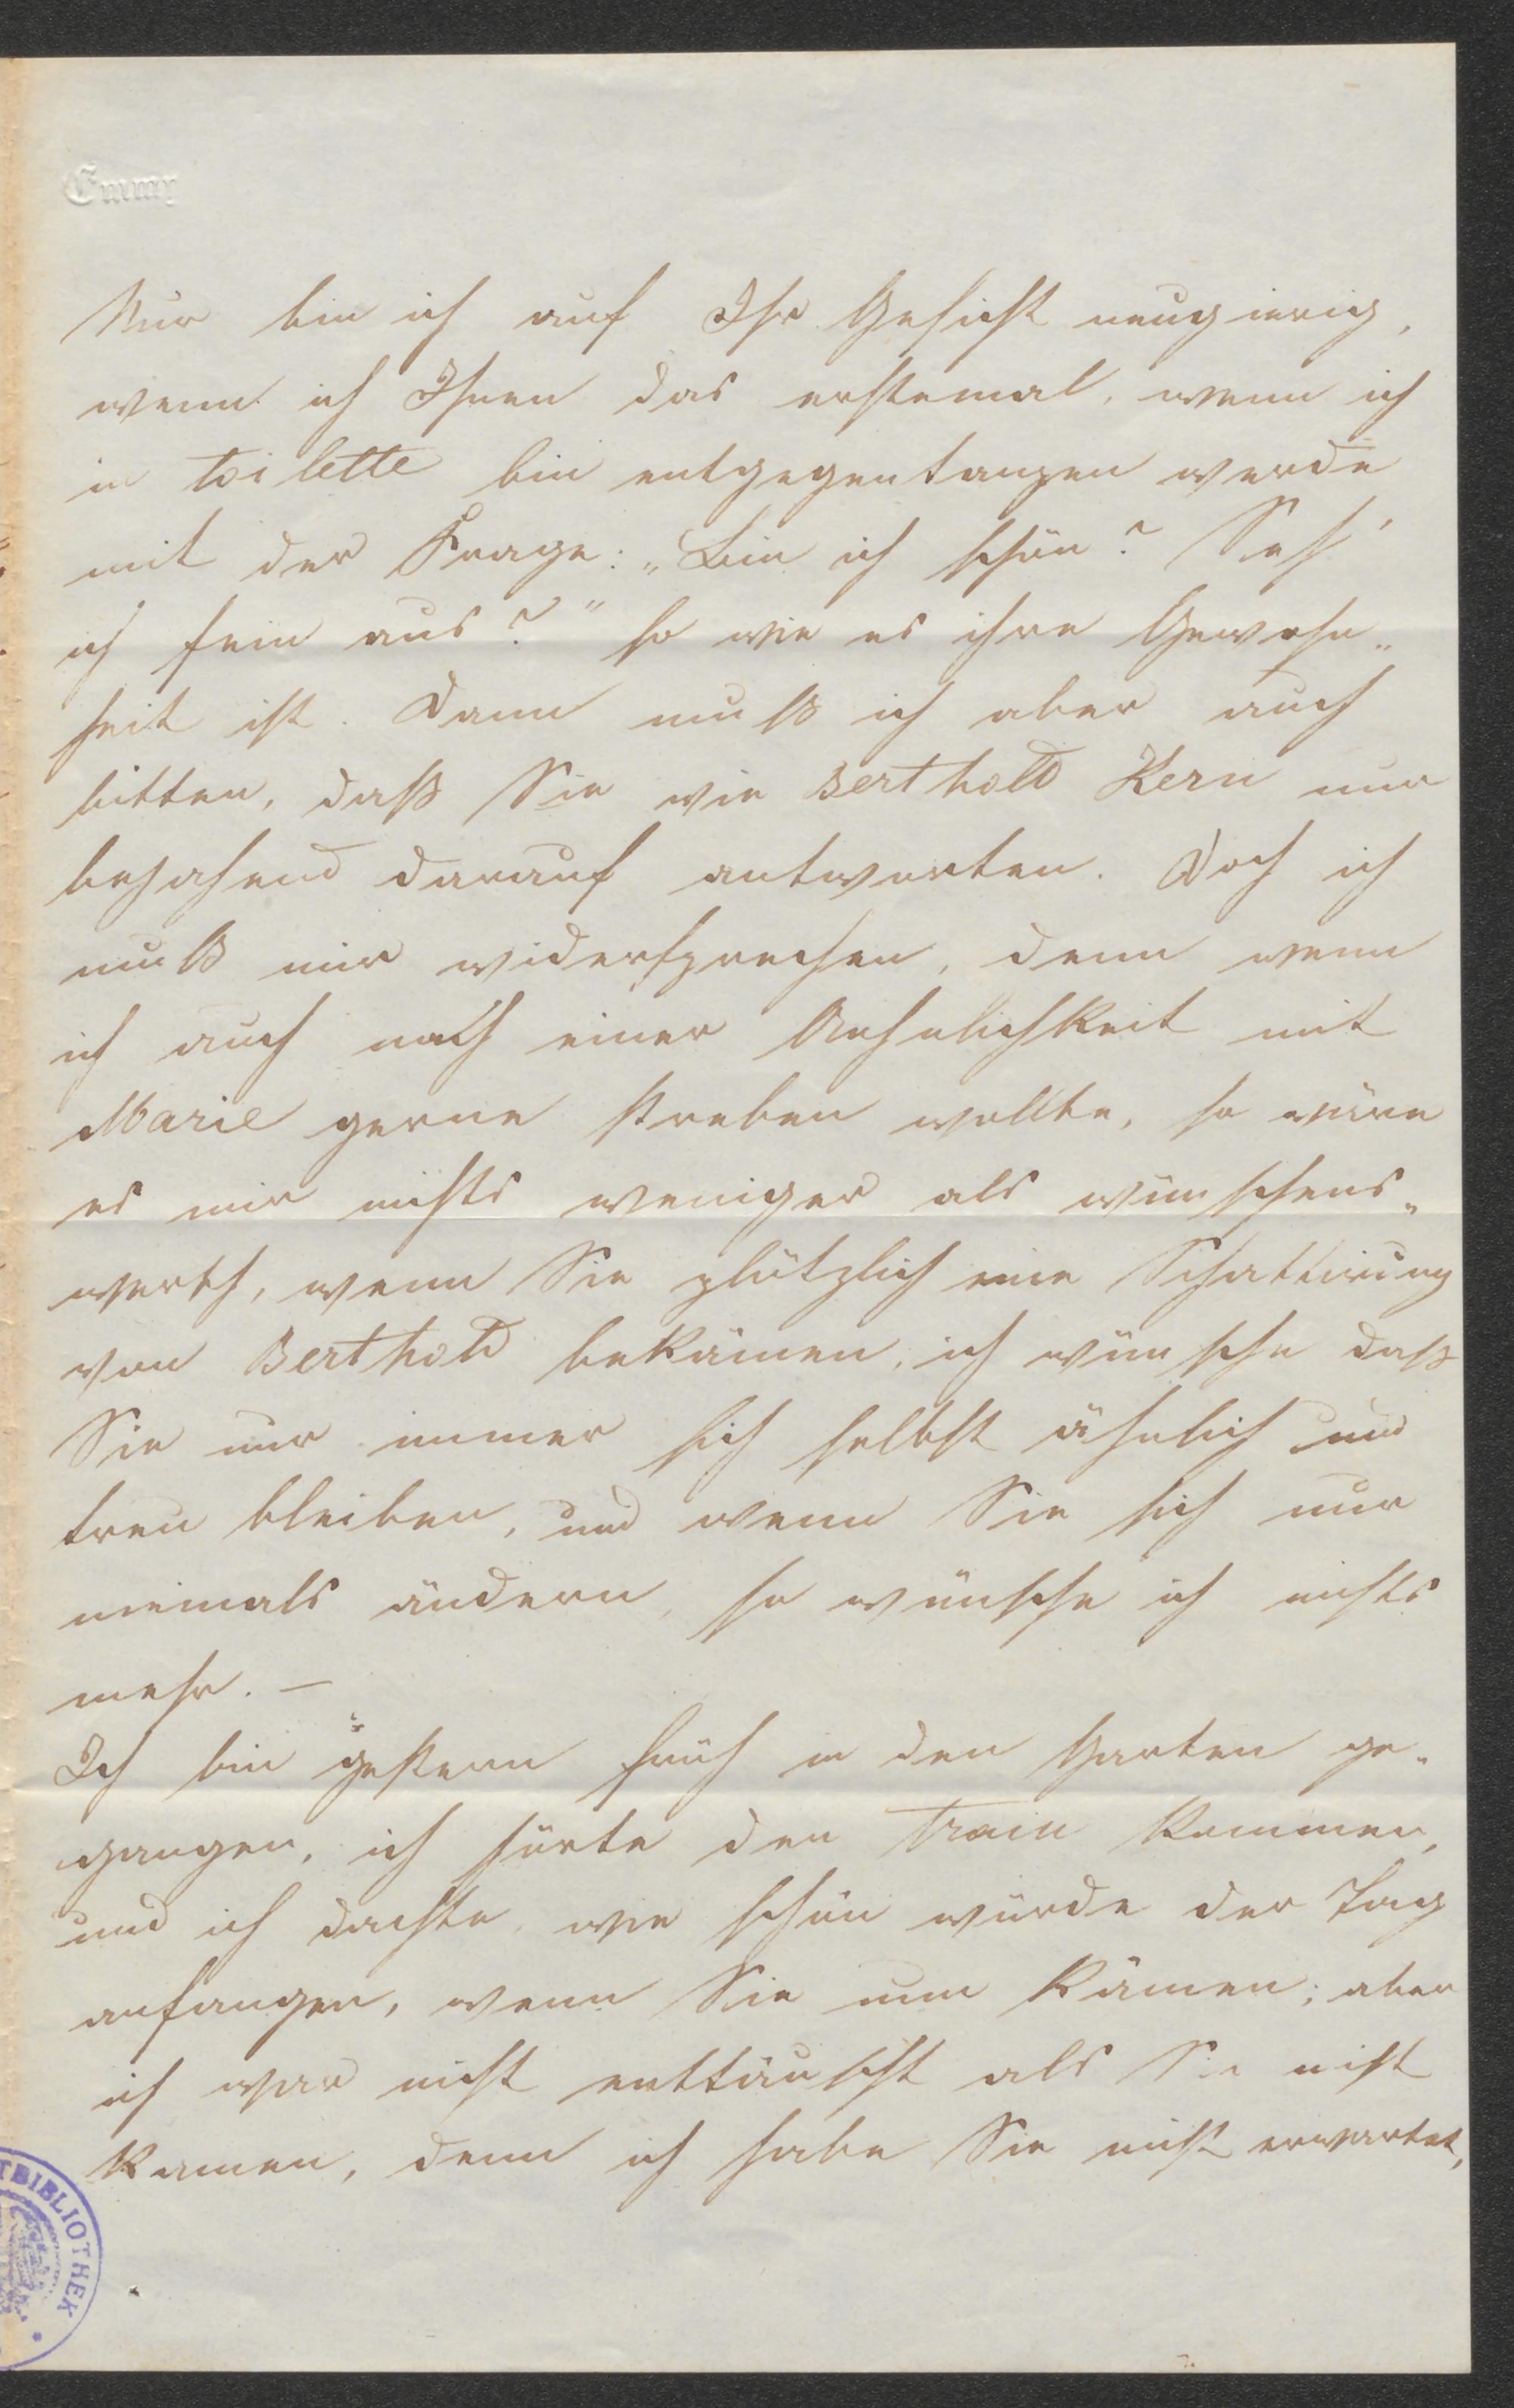 Emmy
Nur bin ich auf Ihr Gesicht neugierig,
wenn ich Ihnen das erstemal, wenn ich
in toilette bin entgegentanzen werde
mit der Frage: „Bin ich schön? Seh'
ich fein aus?" so wie es ihre Gewohn„
heit ist. Dann muß ich aber auch
bitten, daß Sie wie Berthold Kern nur
bejahend darauf antworten. Doch ich
muß mir widersprechen, denn wenn
ich auch nach einer Aehnlichkeit mit
Marie gerne streben wollte, so wäre
es mir nichts weniger als wünschens„
werth, wenn Sie plötzlich eine Schattirung
von Berthold bekämen, ich wünsche daß
Sie nur immer sich selbst ähnlich und
treu bleiben, und wenn Sie sich nur
niemals ändern, so wünsche ich nichts
mehr. –
Ich bin gestern früh in den Garten ge„
gangen, ich hörte den Train kommen,
und ich dachte wie schön würde der Tag
anfangen, wenn Sie nun kämen; aber
ich war nicht enttäuscht als Sie nicht
kamen, denn ich habe Sie nicht erwartet,
TBIBLIOTHEK